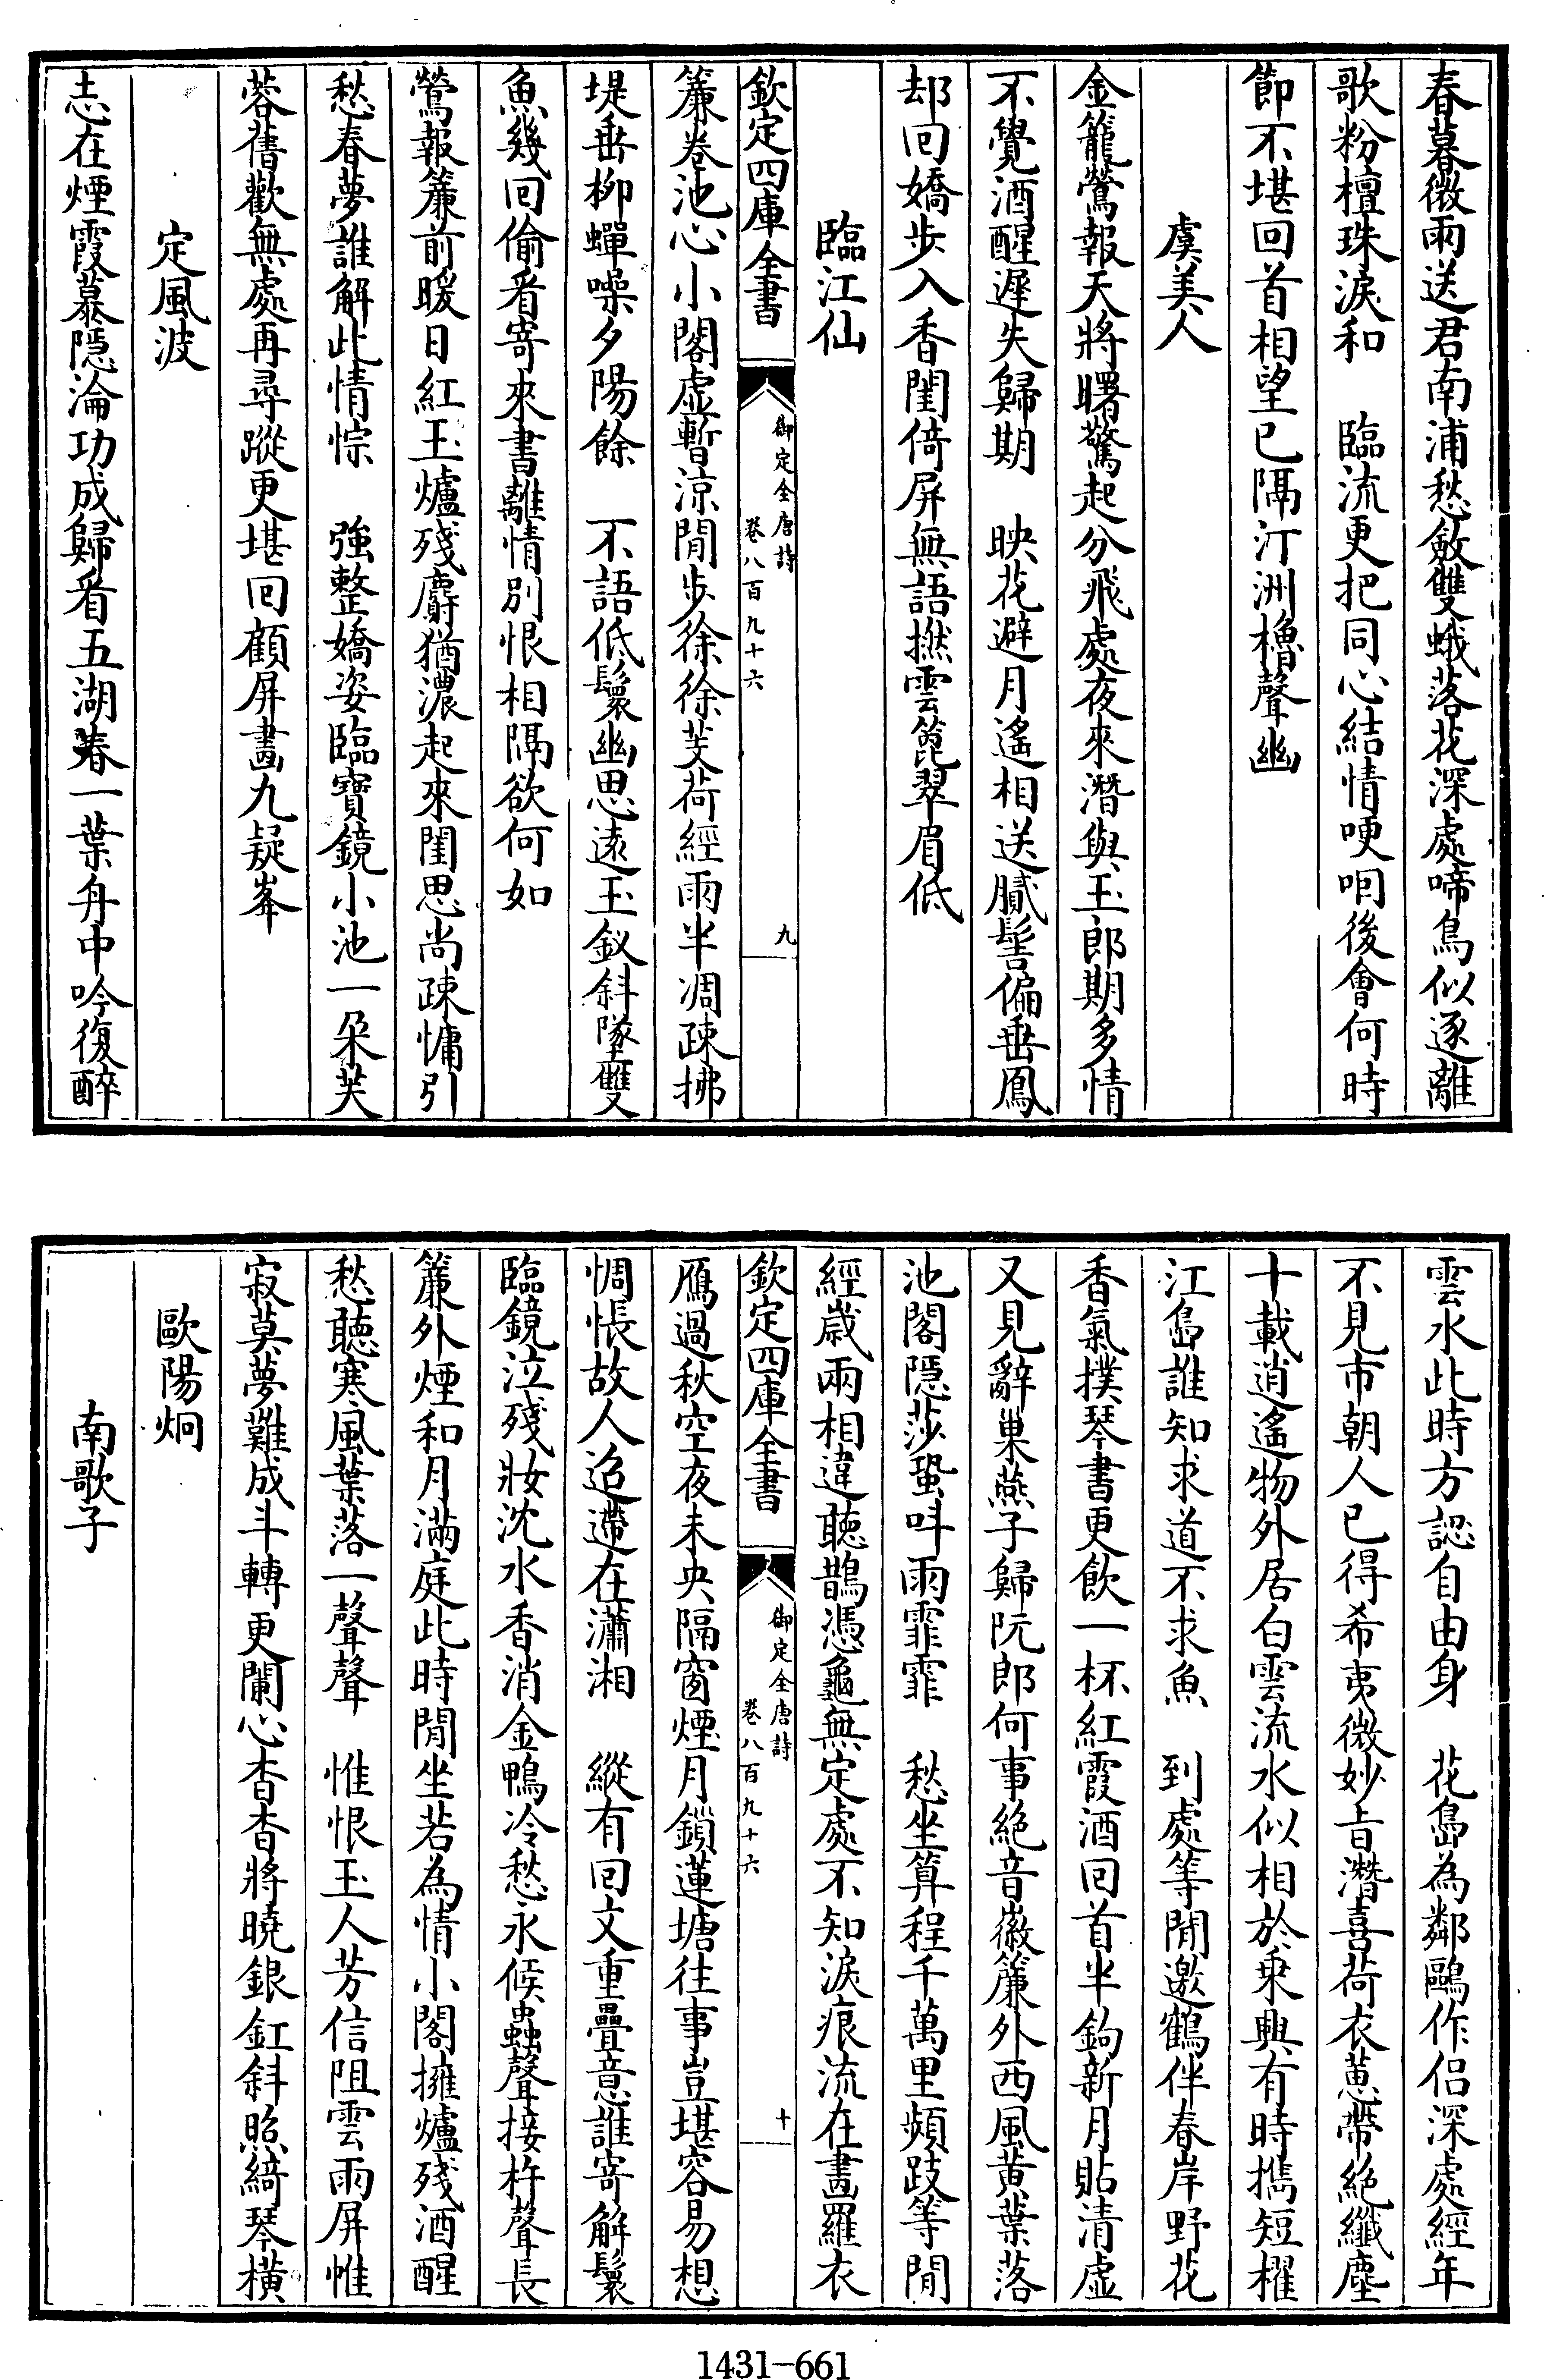 春暮微雨送君南浦愁斂雙蛾落花深處啼鳥似逐離
歌粉檀珠淚和　臨流更把同心結情哽咽後會何時
節不堪回首相望已隔汀洲櫓聲幽
虞美人
金籠鶯報天將曙驚起分飛處夜來潛與玉郎期多情
不覺酒醒遲失歸期　映花避月遙相送膩髻偏垂鳳
却回嬌步入香閨倚屏無語撚雲篦翠眉低
臨江仙
欽定四庫全書
御定全唐詩
卷八百九十六
九
簾卷池心小閣虛暫涼閒步徐徐芰荷經雨半凋疎拂
堤垂柳蟬噪夕陽餘　不語低鬟幽思遠玉釵斜墜雙
魚幾回偷看寄來書離情別恨相隔欲何如
鶯報簾前暖日紅玉爐殘麝猶濃起來閨思尚疎慵別
愁春夢誰解此情悰　強整嬌姿臨寶鏡小池一朶芙
蓉舊歡無處再尋蹤更堪回顧屏畫九疑峯
定風波
志在煙霞慕隱淪功成歸看五湖春一葉舟中吟復醉
雲水此時方認自由身　花島為鄰鷗作侶深處經年
不見市朝人已得希夷微妙旨潛喜荷衣蕙帶絕纖塵
十載逍遙物外居白雲流水似相於乘興有時攜短櫂
江島誰知求道不求魚　到處等閒邀鶴伴春岸野花
香氣撲琴書更飲一杯紅霞酒回首半鉤新月貼清虛
又見辭巢燕子歸阮郎何事絕音徽簾外西風黃葉落
池閣隱莎蛩叫雨霏霏　愁坐算程千萬里頻跂等閒
經歲兩相違聽鵲憑龜無定處不知淚痕流在畫羅衣
欽定四庫全書
御定全唐詩
卷八百九十六
十
鴈過秋空夜未央隔窗煙月鎖蓮塘往事豈堪容易想
惆悵故人迢遞在瀟湘　縱有回文重疊意誰寄解鬟
臨鏡泣殘妝沈水香消金鴨冷愁永候蟲聲接杵聲長
簾外煙和月滿庭此時閒坐若為情小閣擁爐殘酒醒
愁聽寒風葉落一聲聲　惟恨玉人芳信阻雲雨屏帷
寂莫夢難成斗轉更闌心杳杳將曉銀釭斜照綺琴橫
歐陽炯
南歌子
1431-661